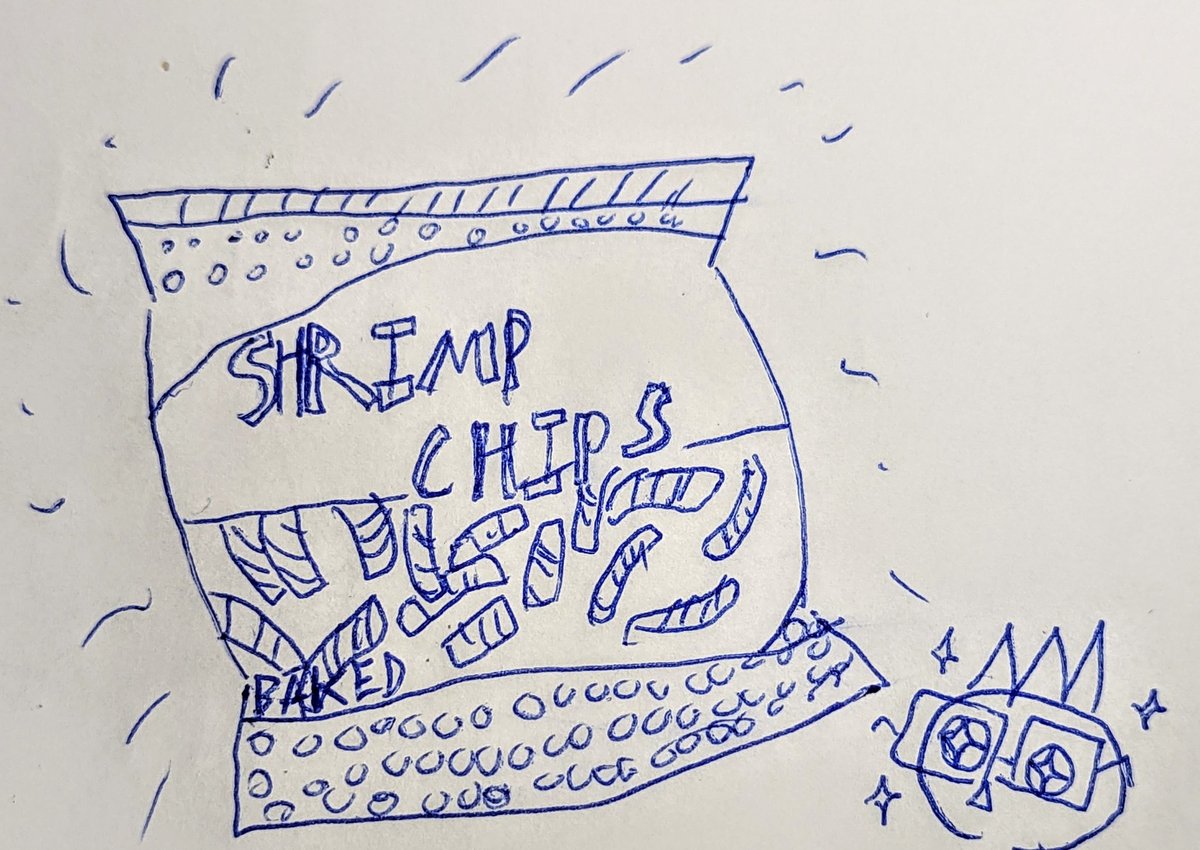 SHRIMP
CHIPS
BAKED